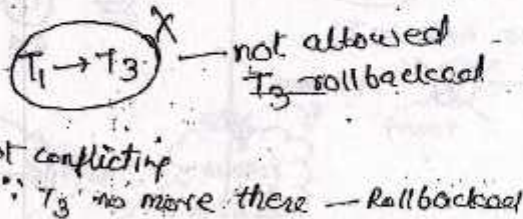 T1 → T3 X — not allowed
T3 rollbacked
t conflicting
∵ T3 no more there — Rollbacked